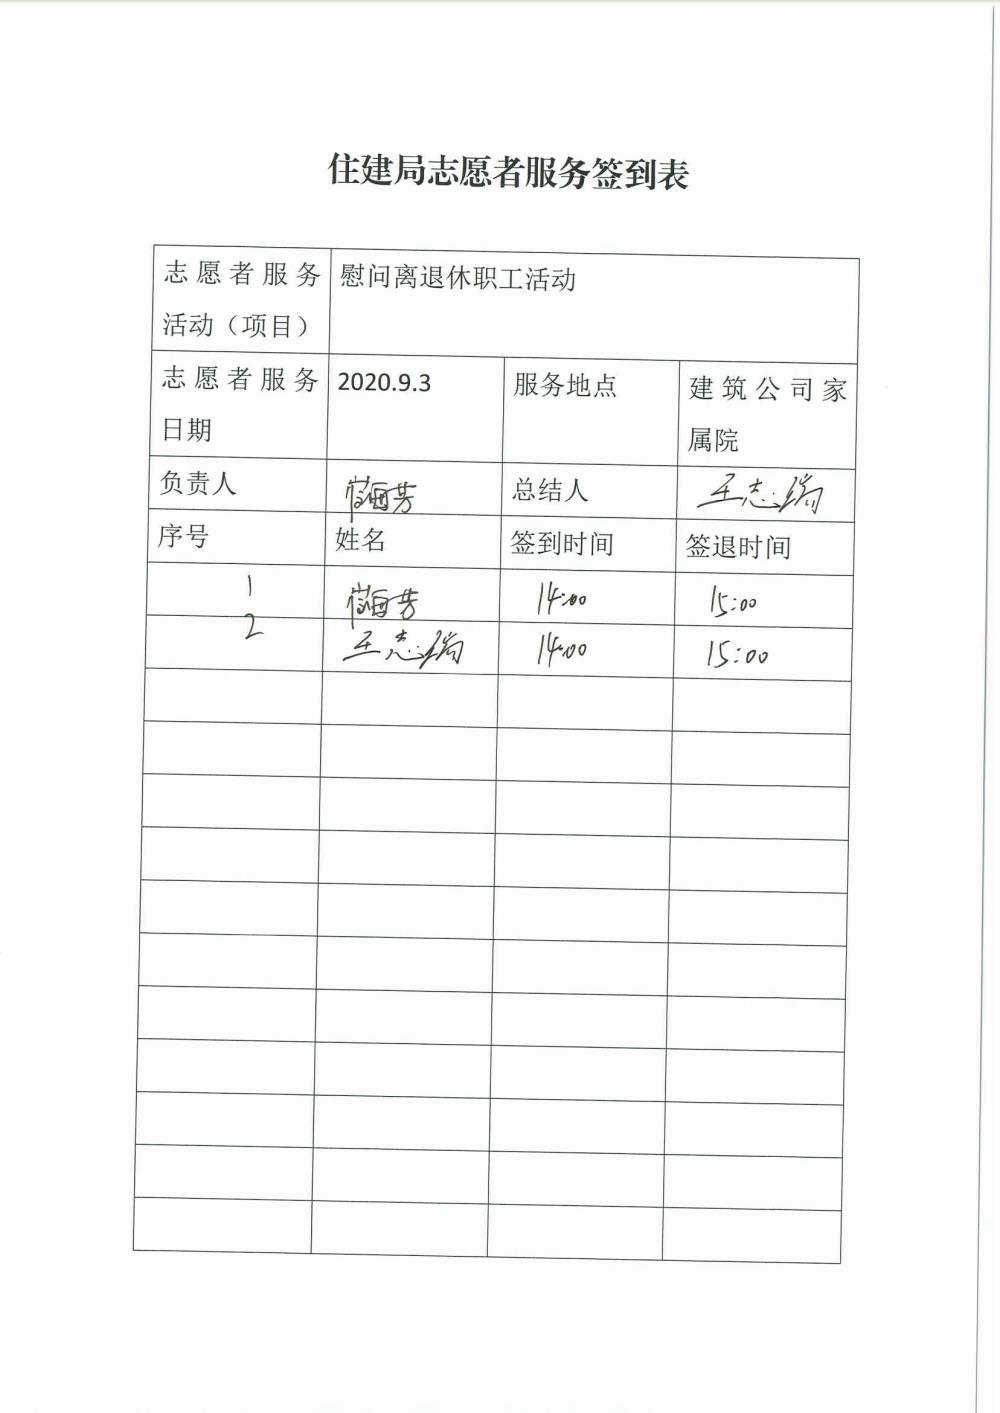 住建局志愿者服务签到表
志愿者服务 慰问离退休职工活动
活动（项目）
志愿者服务 2020.9.3 服务地点 建筑公司家
日期 属院
负责人 总结人 王志瑞
序号 姓名 签到时间 签退时间
1 14:00 15:00
2 王志瑞 14:00 15:00